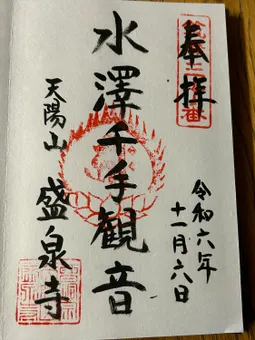 奉拝
令和六年
十一月六日
水澤千手観音
天陽山 盛泉寺